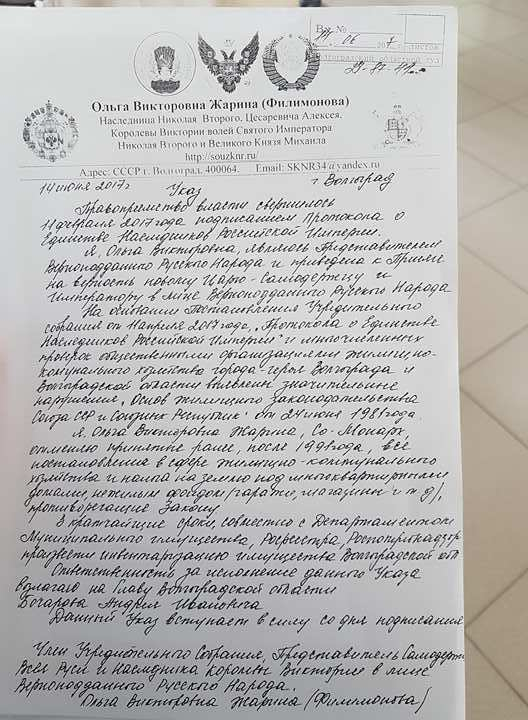 Вх. №
14 06 листов
Ольга Викторовна Жарина (Филимонова)
Наследница Николая Второго, Цесаревича Алексея,
Королевы Виктории волей Святого Императора
Николая Второго и Великого Князя Михаила
http://souzknr.ru/
Адрес: СССР г. Волгоград, 400064. Email: SKNR34@yandex.ru
14 июня 2017г Указ г Волгоград
Правопреемство власти свершилось
11 февраля 2017 года подписанием Протокола о
Единстве Наследников Российской Империи.
Я, Ольга Викторовна, являюсь Представителем
Верноподданного Русского Народа и приведена к Присяге
на верность новому Царю-Самодержцу и
Императору в лице Верноподданного Русского Народа
На основании Постановления Учредительного
собрания от 11 апреля 2017 года, "Протокола о Единстве
Наследников Российской Империи" и многочисленных
проверок общественными организациями жилищно-
коммунального хозяйства города героя Волгограда и
Волгоградской области выявлены значительные
нарушения "Основ жилищного законодательства
Союза ССР и Союзных Республик" от 24 июня 1981 года.
Я, Ольга Викторовна Жарина, Со-Монарх,
отменяю принятые ранее, после 1991 года, все
постановления в сфере жилищно-коммунального
хозяйства и налога на землю под многоквартирными
домами, нежилым фондом /гаражи, магазины и т.д/,
противоречащие Закону
В кратчайшие сроки, совместно с Департаментом
Муниципального имущества, Росреестра, Роспотребнадзор
произвести инвентаризацию имущества Волгоградской обл
Ответственность за исполнение данного Указа
возлагаю на Главу Волгоградской области
Бочарова Андрея Ивановича
Данный Указ вступает в силу со дня подписания
Член Учредительного Собрания, Представитель Самодерж
Всея Руси и Наследника Королевы Виктории в лице
Верноподданного Русского Народа.
Ольга Викторовна Жарина (Филимонова)